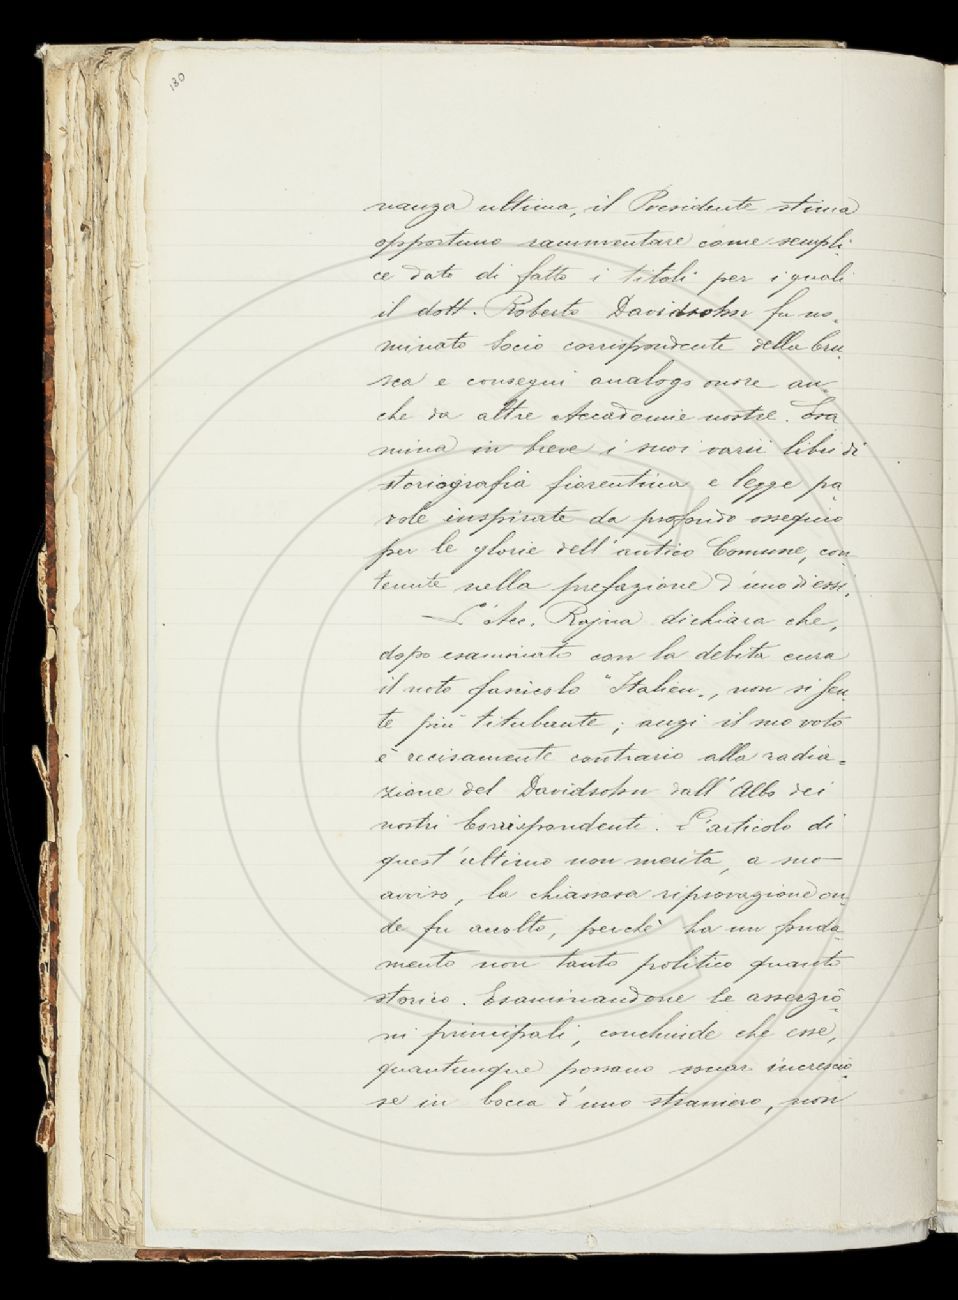 130
nanza ultima, il Presidente stima
opportuno rammentare come sempli-
ce dato di fatto i titoli per i quali
il dott. Roberto Davidsohn fu no-
minato Socio corrispondente della Cru-
sca e conseguì analogo onore an-
che da altre Accademie nostre. Esa
mina in breve i suoi varii libri di
storiografia fiorentina e legge pa
role inspirate da profondo ossequio
per le glorie dell'antico Comune, con
tenute nella prefazione d'uno di essi.
— L'Acc. Rajna dichiara che,
dopo esaminato con la debita cura
il noto fascicolo "Italien", non si sen-
te più titubante; anzi il suo voto
è recisamente contrario alla radia-
zione del Davidsohn dall'Albo dei
nostri Corrispondenti. L'articolo di
quest'ultimo non merita, a suo
avviso, la chiassosa riprovazione on-
de fu accolto, perchè ha un fonda-
mento non tanto politico quanto
storico. Esaminandone le asserzio
ni principali, conchiude che esse,
quantunque possano sonar increscio-
se in bocca d'uno straniero, non